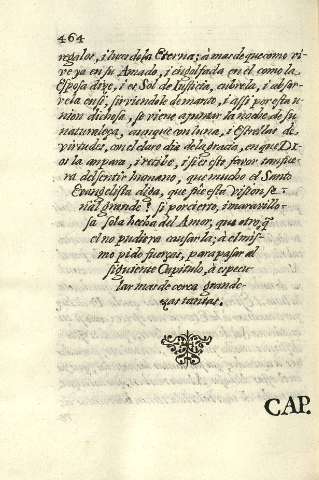 464
regalos, i luces de la Eterna; à mas de que como vi
ve ya en su Amado, i engolfada en el como la
Esposa dize, i es Sol de Iusticia, cubrela, i absor
vela en si, sirviendole de manto, i assi por esta u
nion dichosa, se viene a juntar la noche de su
naturaleza, aunque con luna, i Estrellas de
virtudes, con el claro dia de la gracia, en que DI
os la ampara, i recibe, i si es este favor transcie
ra del sentir humano, que mucho el Santo
Evangelista diga, que fue esta vision se
ñal grande? si por cierto, i maravillo
sa sola hecha del Amor, que otro, q̃
el no pudiera causarla; à el mis
mo pido fuerzas, para passar al
siguiente Capitulo, à especu
lar mas de cerca grande
zas tantas.
CAP.